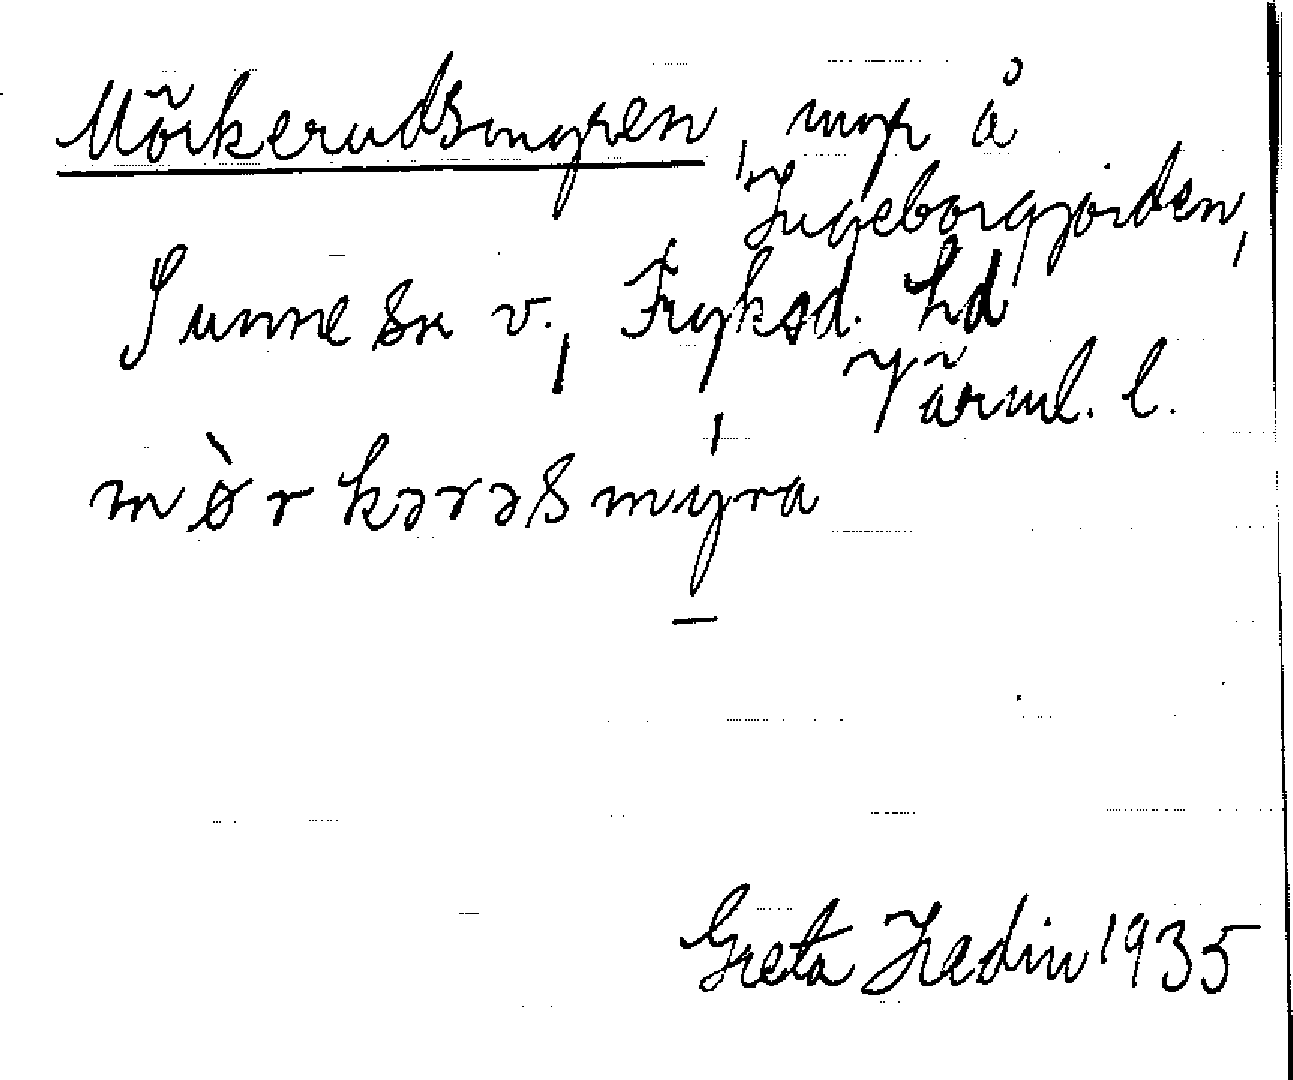 Mörkerudsmyren, myr å
Ingeborgjorden,
Sunne sn v., Fryksd. hd
Värml. l.
mø̀rkərəsmýra
Greta Hedin 1935